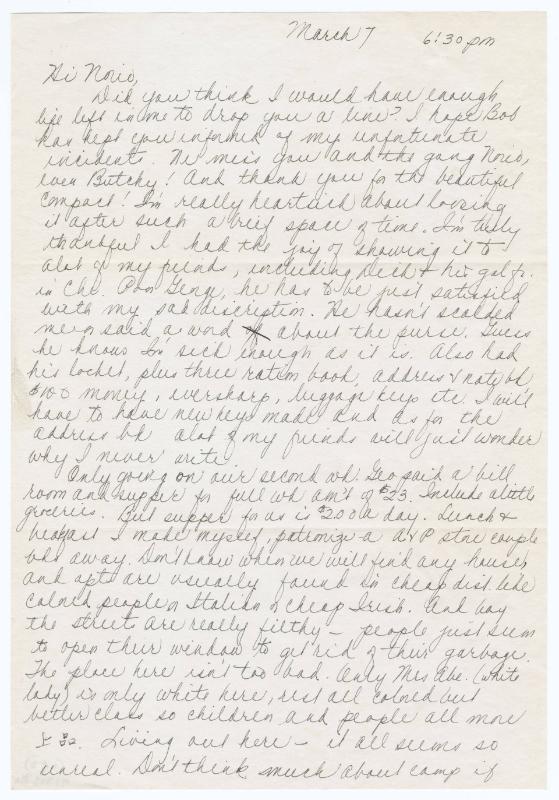 March 7 6:30 pm
Hi Norio,
Did you think I would have enough
life left in me to drop you a line? I hope Bob
has kept you informed of my unfortunate
incident. We miss you and the gang Norio,
even Butchy! And thank you for the beautiful
compact! I'm really heartsick about loosing
it after such a brief space of time. I'm truly
thankful I had the joy of showing it to
alot of my friends, including Deed + his gal fr.
in Chi. Poor George, he has to be just satisfied
with my sad discription. He hasn't scolded
me or said a word about the purse. Guess
he knows I'm sick enough as it is. Also had
his locket, plus three ration book, address & note bk
money, eversharp, luggage keys etc. I will
have to have new keys made and as for the
address bk alot of my friends will just wonder
why I never write.
Only going on our second wk. Geo paid a bill
room and supper for full wk am't of $23. Include a little
groceries. But supper for us is $2.00 a day. Lunch &
breakfast I made myself, patronize a A&P store couple
blks away. Don't know when we will find any houses
and apts are usually found in cheap dist. like
colored people or Italian or cheap Irish. And boy
the streets are really filthy — people just seem
to open their window to get rid of their garbage.
The place here isn't too bad. Only Mrs Abe. (white
lady) is only white here, rest all colored but
better class so children and people all more
上品. Living out here — it all seems so
unreal. Don't think much about camp if